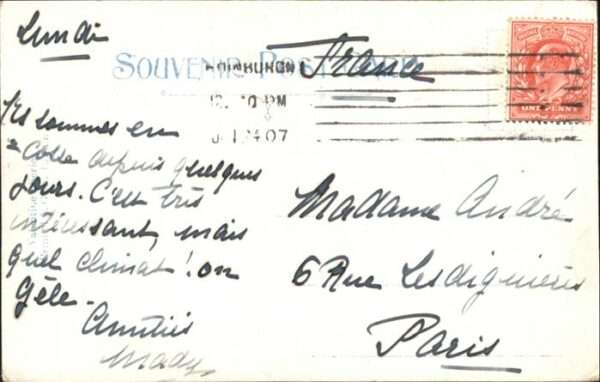 Lundi
SOUVENIR POST
EDINBURGH
12. 10 PM
J 24 07
France
ONE PENNY
sommes en
Ecosse depuis quelques
jours. C'est très
intéressant, mais
quel climat! on
gèle.
Amitiés
Mady
Madame André
6 Rue Lesdiguières
Paris